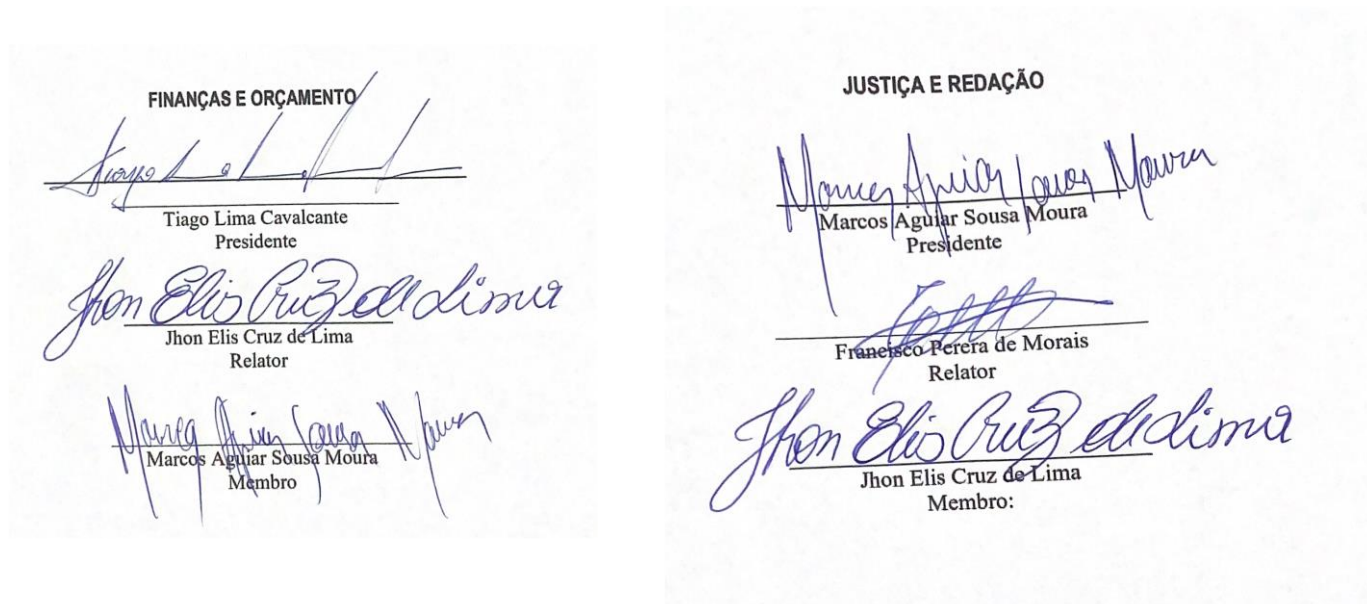 FINANÇAS E ORÇAMENTO
Tiago Lima Cavalcante
Presidente
Jhon Elis Cruz de Lima
Jhon Elis Cruz de Lima
Relator
Marcos Aguiar Sousa Moura
Marcos Aguiar Sousa Moura
Membro
JUSTIÇA E REDAÇÃO
Marcos Aguiar Sousa Moura
Marcos Aguiar Sousa Moura
Presidente
Francisco Perera de Morais
Relator
Jhon Elis Cruz de Lima
Jhon Elis Cruz de Lima
Membro: